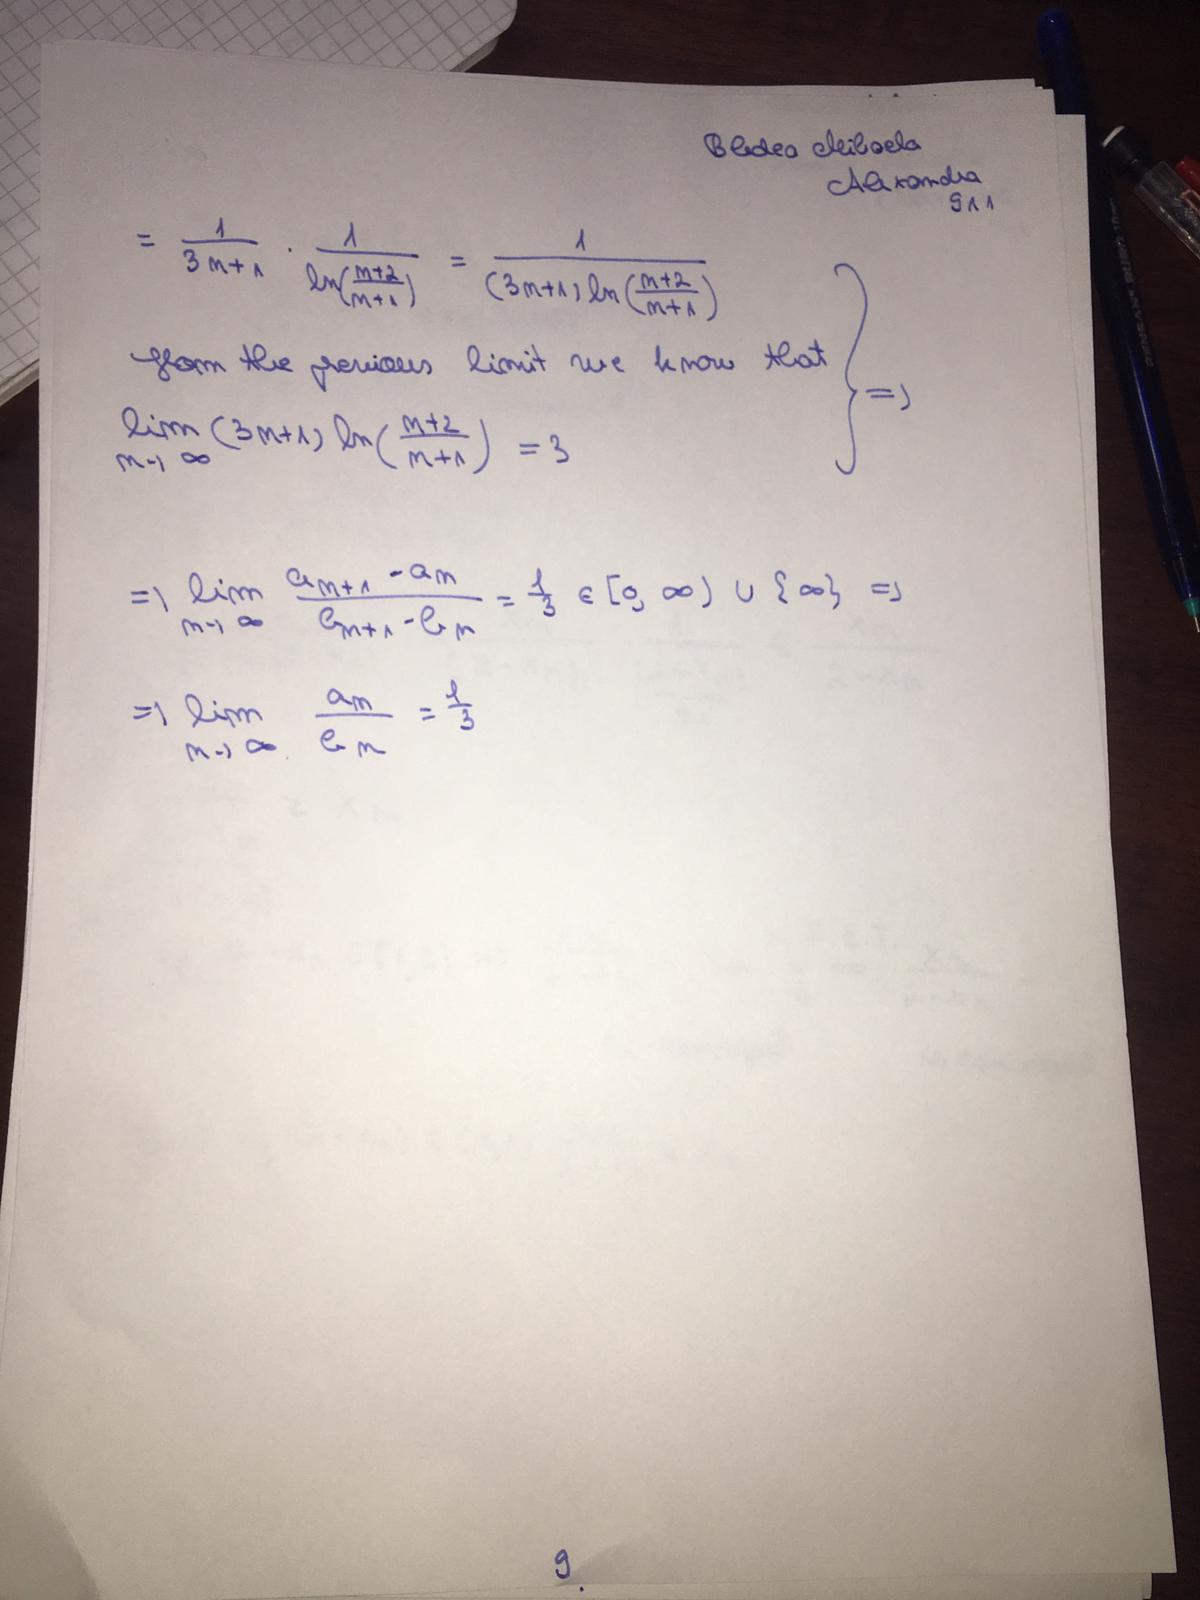 Bledea Mihaela
Alexandra
911
= 1/(3n+1) · 1/ln((n+2)/(n+1)) = 1/((3n+1) ln((n+2)/(n+1)))
from the previous limit we know that
lim n→∞ (3n+1) ln((n+2)/(n+1)) = 3 } =>
=> lim n→∞ (a_{n+1} - a_n)/(b_{n+1} - b_n) = 1/3 ∈ [0, ∞) ∪ {∞} =>
=> lim n→∞ a_n/b_n = 1/3
9.